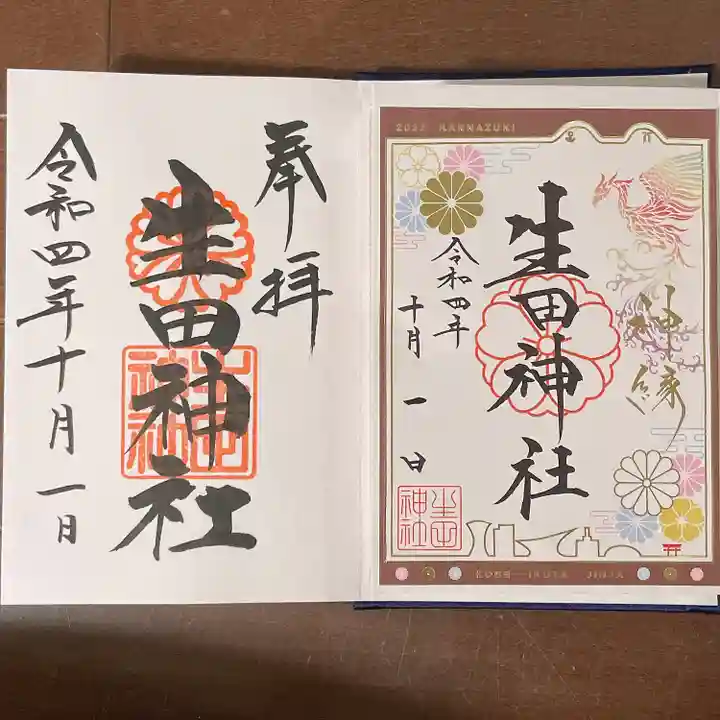 奉拝
生田神社
生田神社
令和四年十月一日
2022 KANNAZUKI
神縁
生田神社
令和四年
十月一日
生田神社
KOBE IKUTA JINJA